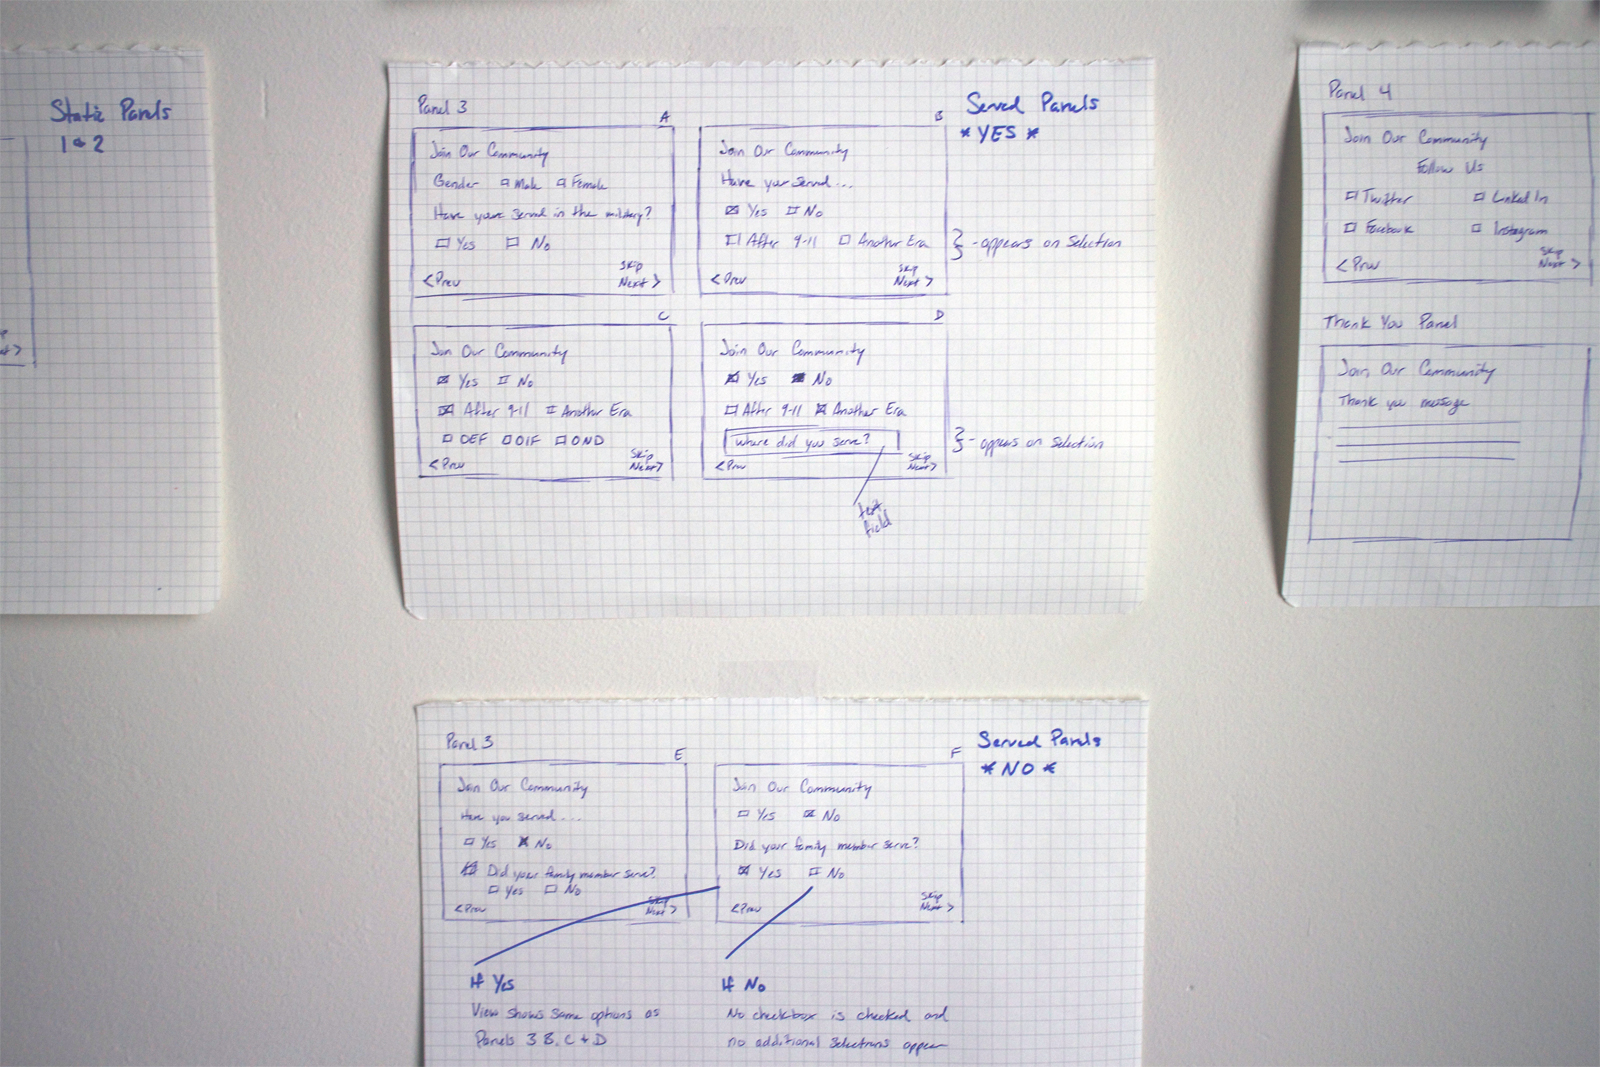 Static Panels
1 & 2
Next >
Panel 3
Served Panels
* YES *
A
Join Our Community
Gender Male Female
Have you served in the military?
Yes No
Skip
< Prev Next >
B
Join Our Community
Have you served...
Yes No
After 9-11 Another Era
} - appears on Selection
Skip
< Prev Next >
C
Join Our Community
Yes No
After 9-11 Another Era
OEF OIF OND
Skip
< Prev Next >
D
Join Our Community
Yes No
After 9-11 Another Era
Where did you serve?
} - appears on Selection
Skip
< Prev Next >
text
field
Panel 4
Join Our Community
Follow Us
Twitter LinkedIn
Facebook Instagram
Skip
< Prev Next >
Thank You Panel
Join Our Community
Thank you message
Panel 3
Served Panels
* NO *
E
Join Our Community
Have you served...
Yes No
Did your family member serve?
Yes No
Skip
< Prev Next >
F
Join Our Community
Yes No
Did your family member serve?
Yes No
Skip
< Prev Next >
If Yes
View shows same options as
Panels 3 B, C & D
If No
No checkbox is checked and
no additional selections appear